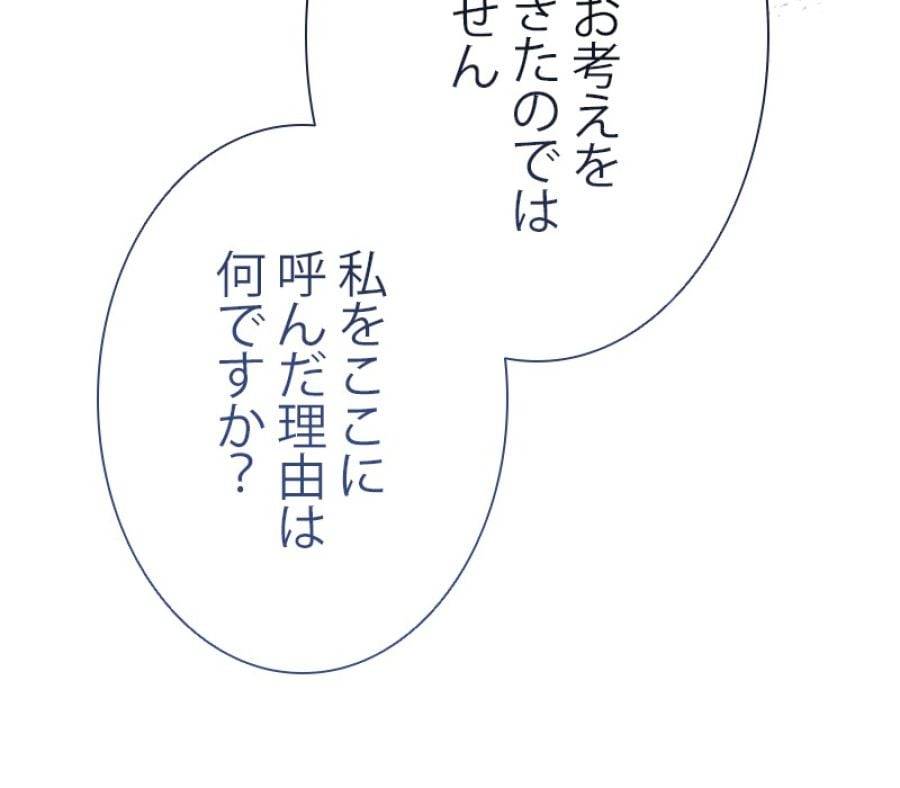 お考えを
きたのでは
せん
私をここに
呼んだ理由は
何ですか?